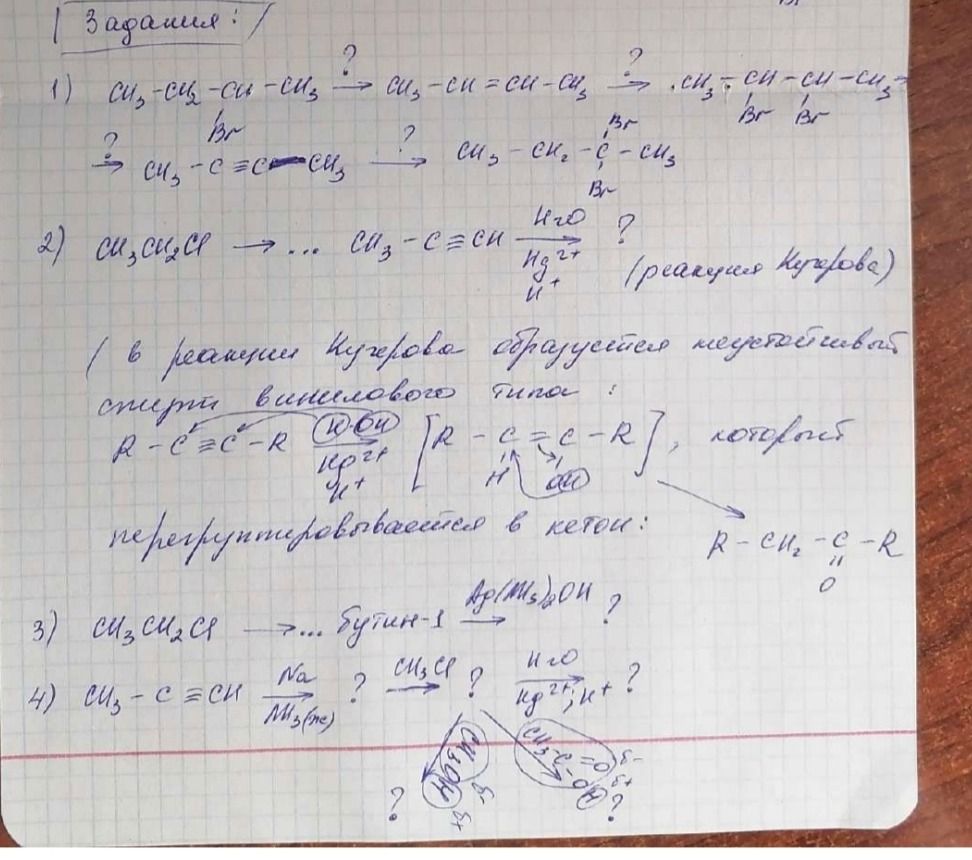 Задания:
1) CH₃-CH₂-CH-CH₃ →? CH₃-CH=CH-CH₃ →? CH₃-CH-CH-CH₃
Br Br Br
→? CH₃-C≡C-CH₃ →? CH₃-CH₂-C-CH₃
Br
Br
2) CH₃CH₂Cl → ... CH₃-C≡CH → ?
H₂O
Hg²⁺
H⁺
(реакция Кучерова)
( в реакции Кучерова образуется неустойчивый
спирт винилового типа:
R-C≡C-R → [R-C=C-R], который
H-OH
Hg²⁺
H⁺
H OH
перегруппировывается в кетон:
R-CH₂-C-R
O
3) CH₃CH₂Cl → ... бутин-1 → ?
Ag(NH₃)₂OH
4) CH₃-C≡CH → ? → ? → ?
Na
NH₃(ж)
CH₃Cl
H₂O
Hg²⁺; H⁺
CH₃OH δ- δ+
?
CH₃-C=O δ-
-OH δ+
?